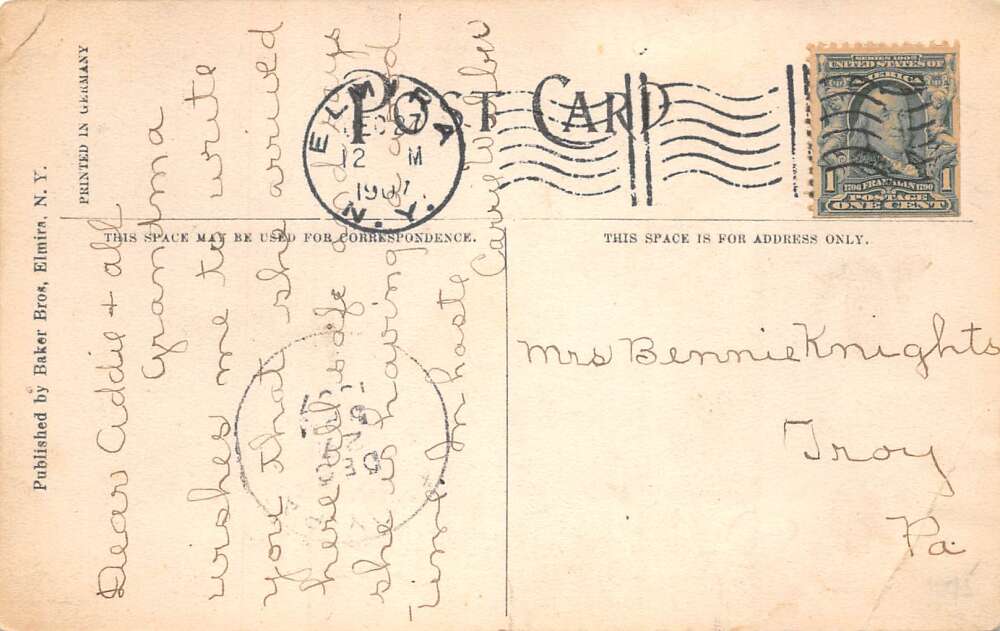 POST CARD
ELMIRA
N.Y.
DEC 27
12 M
1907
SERIES 1902
UNITED STATES OF
AMERICA
1
1706 FRANKLIN 1790
1
POSTAGE
ONE CENT
THIS SPACE MAY BE USED FOR CORRESPONDENCE.
THIS SPACE IS FOR ADDRESS ONLY.
PRINTED IN GERMANY
Published by Baker Bros, Elmira, N. Y.
Dear Addie + all
Grandma
wishes me to write
you that she arrived
here safe and
she is having a good
time. In haste
Carry
Mrs Bennie Knights
Troy
Pa.